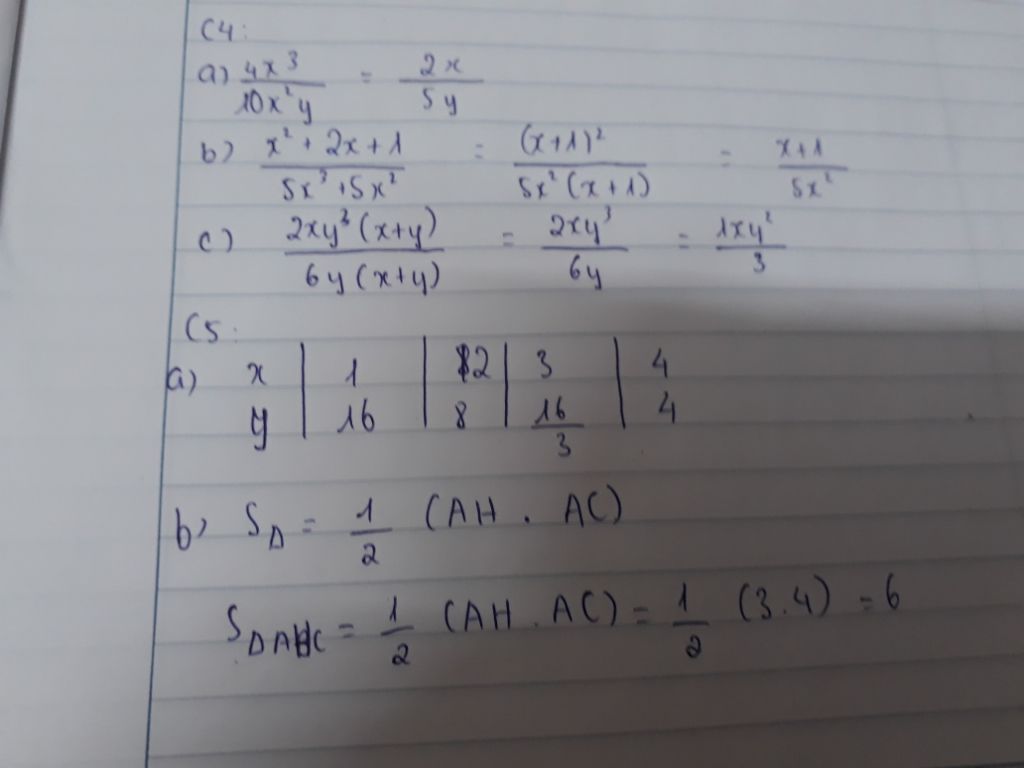 C4:
a) 4x³/10x²y = 2x/5y
b) x² + 2x + 1/5x³ + 5x² = (x+1)²/5x²(x+1) = x+1/5x²
c) 2xy³(x+y)/6y(x+y) = 2xy³/6y = 1xy²/3
C5:
a) x | 1 | 2 | 3 | 4
y | 16 | 8 | 16/3 | 4
b) SΔ = 1/2 (AH . AC)
SΔAHC = 1/2 (AH . AC) = 1/2 (3.4) = 6